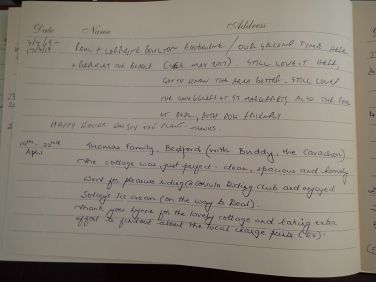 Date Name Address
Paul + Lorraine / OUR SECOND TIME HERE
(MAY 2017). STILL LOVE IT HERE,
GOT TO KNOW THE AREA BETTER, STILL LOVED
THE SMUGGLERS AT ST MARGARETS. ALSO THE
AT DEAL, BOTH DOG FRIENDLY
HAPPY ENJOY THE PLANT. THANKS.
19th - 22nd April Thomas Family, Bedford (with Buddy, the Cavachon)
The cottage was just perfect - clean, spacious and homely
Went for pleasure riding Riding Club and enjoyed
Solleys Ice cream (on the way to Deal).
Thank you Lynne for the lovely cottage and taking extra
effort to find out about the local charge points (EV).